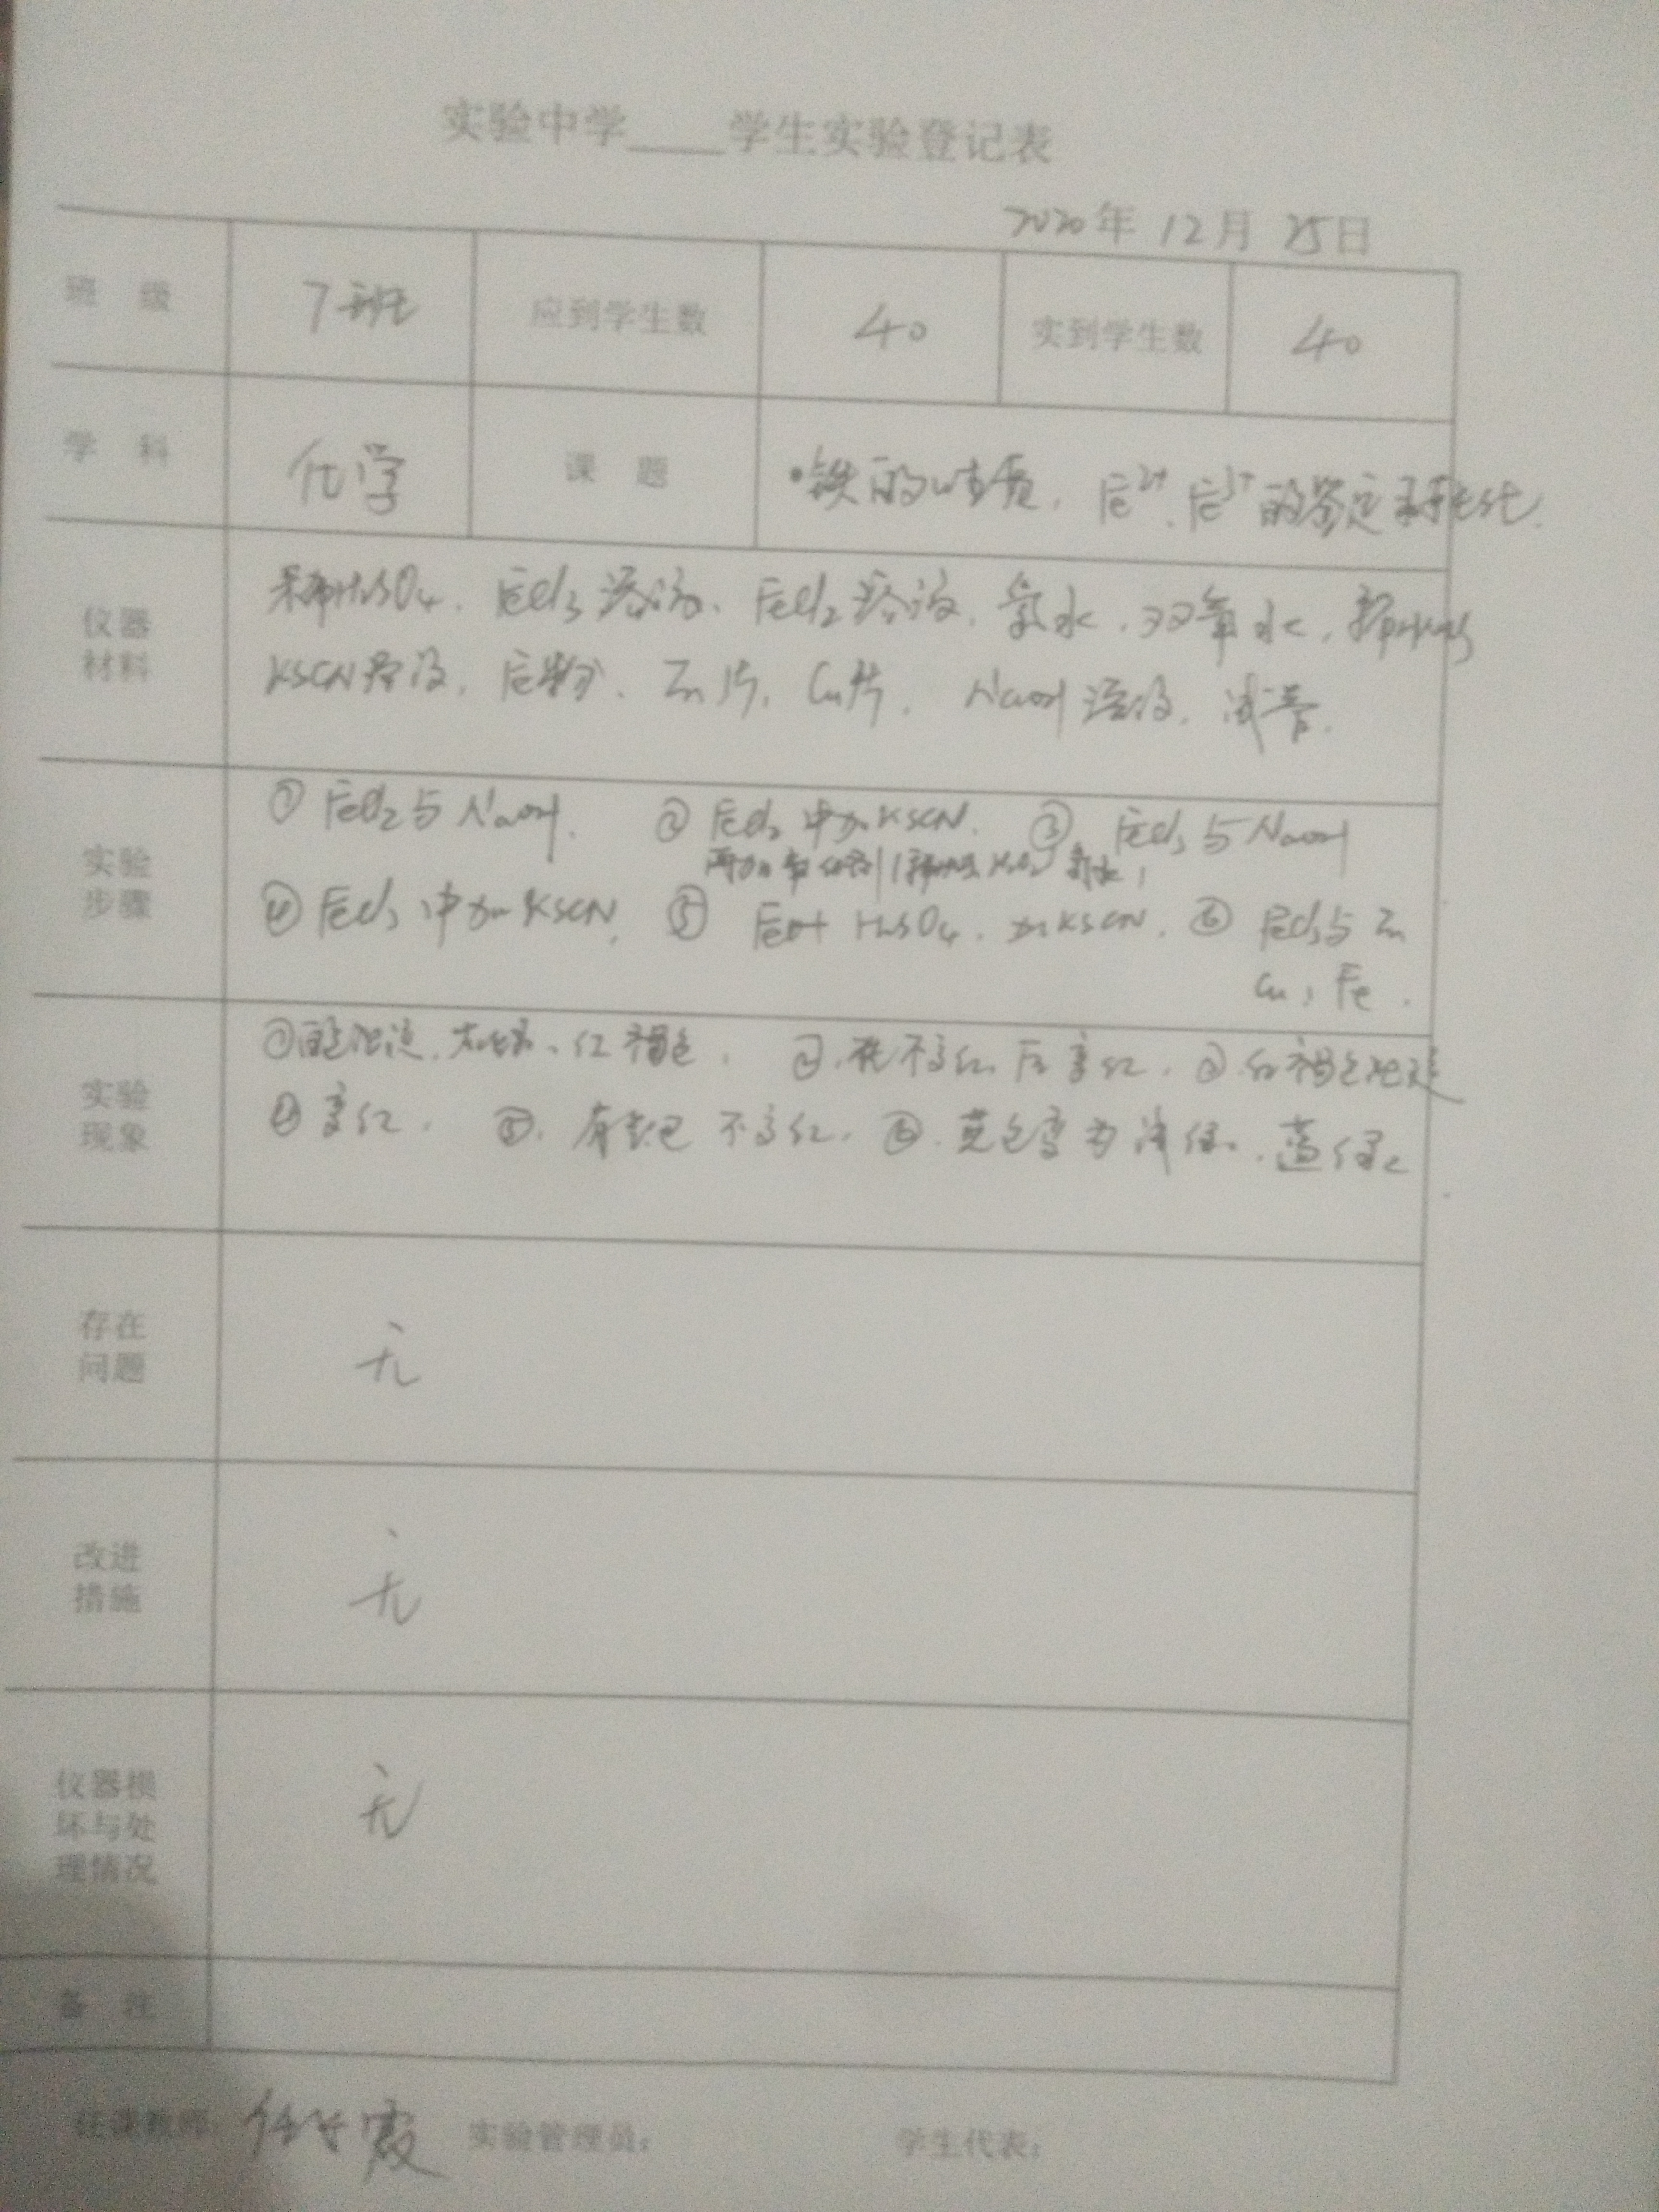 实验中学____学生实验登记表
2020年 12月 25日
班 级 7班 应到学生数 40 实到学生数 40
学 科 化学 课 题 铁的性质, Fe²⁺、Fe³⁺的鉴定和转化.
仪器材料
H₂SO₄、FeCl₃溶液、FeCl₂溶液、氯水、双氧水、
KSCN溶液、Fe粉、Zn片、Cu片、NaOH溶液、试管.
实验步骤
① FeCl₂与NaOH. ② FeCl₂中加KSCN. ③ FeCl₃与NaOH
④ FeCl₃中加KSCN. ⑤ Fe+H₂SO₄、加KSCN. ⑥ FeCl₃与Zn
Cu, Fe.
实验现象
①白色沉淀、灰绿、红褐色. ②先不变红后变红. ③红褐色沉淀
④变红. ⑤有气泡不变红. ⑥黄色变为浅绿、蓝绿
存在问题
无
改进措施
无
仪器损坏与处理情况
无
备 注
任课教师: 实验管理员: 学生代表: